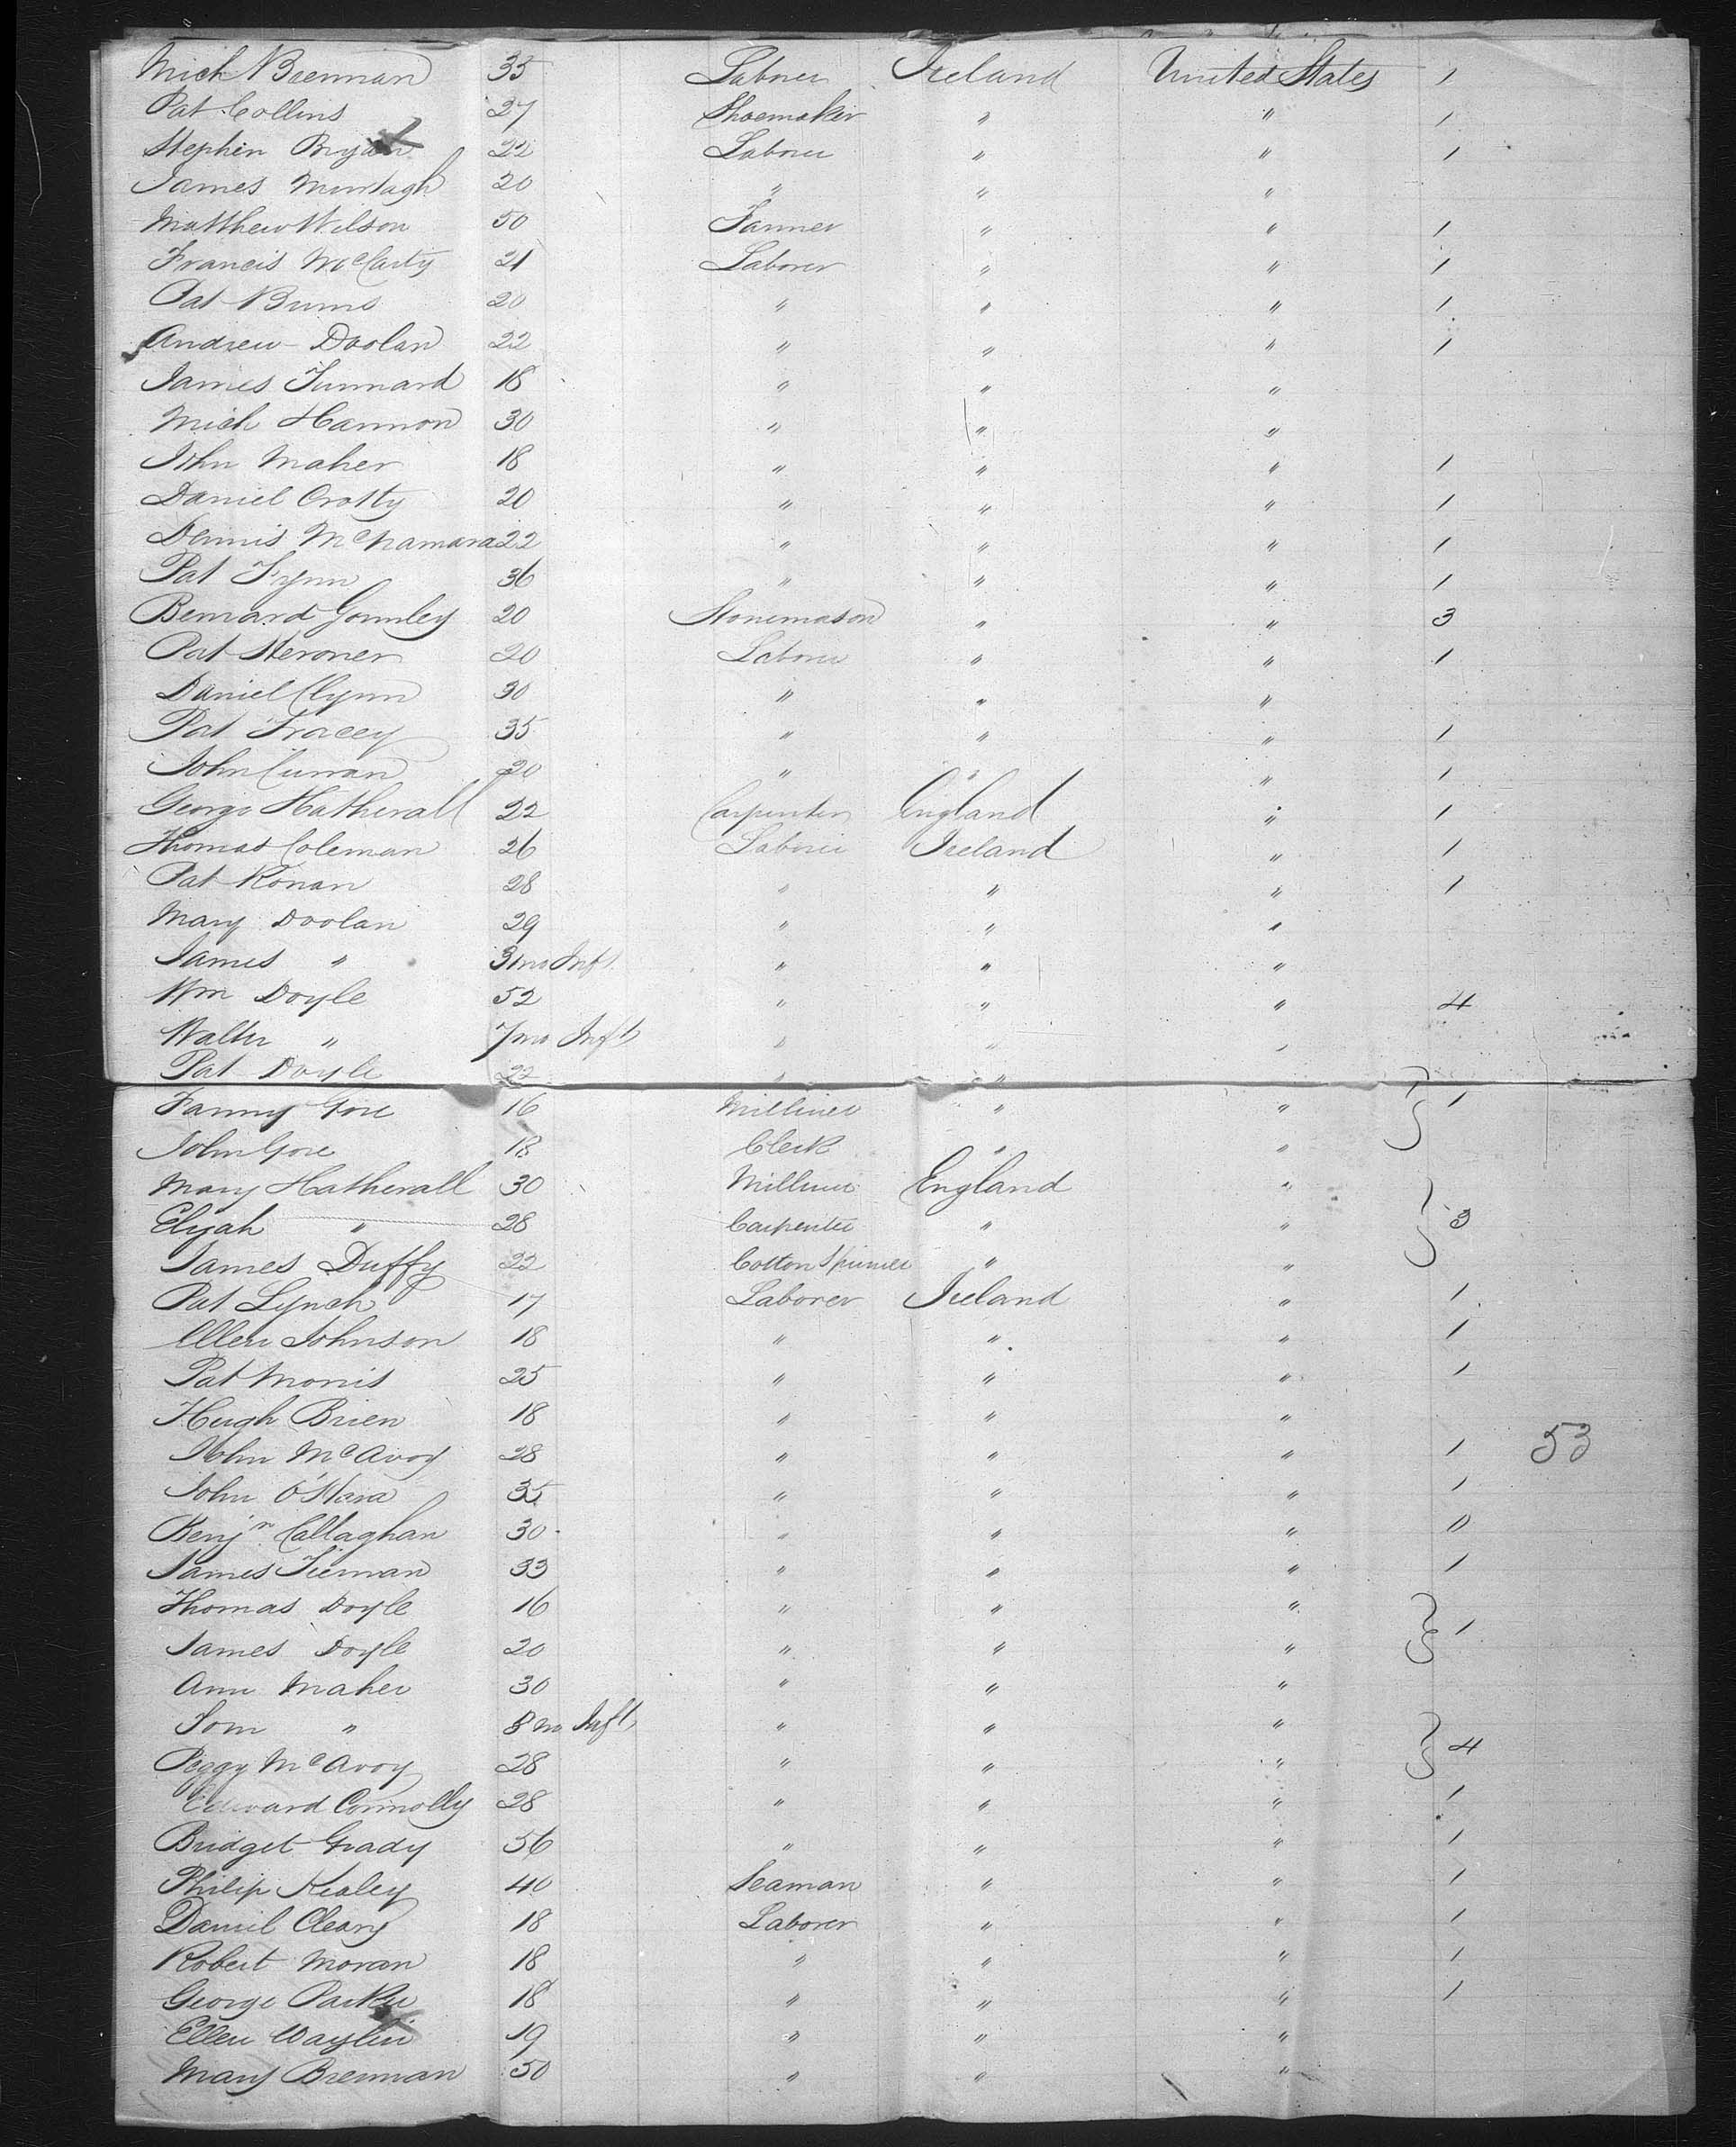 Mich Brennan 35 Laborer Ireland United States 1
Pat Collins 27 Shoemaker " " 1
Stephen Bryan 22 Laborer " " 1
James Murtagh 20 " " "
Matthew Wilson 50 Farmer " " 1
Francis McCarty 21 Laborer " " 1
Pat Burns 20 " " " 1
Andrew Doolan 22 " " " 1
James 18 " " "
Mich Hannon 30 " " "
John Maher 18 " " " 1
Daniel Crotty 20 " " " 1
Dennis McNamara 22 " " " 1
Pat 36 " " " 1
Bernard Gormley 20 Stonemason " " 3
Pat 20 Laborer " " 1
Daniel Clynn 30 " " "
Pat Tracey 35 " " " 1
John Curran 20 " " " 1
George Hatherall 22 Carpenter England " 1
Thomas Coleman 26 Laborer Ireland " 1
Pat Ronan 28 " " " 1
Mary Doolan 29 " " "
James " Inft " " "
Wm Doyle 52 " " " 4
Walter " 7 mo Inft " " "
Pat Doyle 22 " "
Fanny Gore 16 Milliner " " 1
John Gore 18 Clerk " "
Mary Hatherall 30 Milliner England "
Elijah " 28 Carpenter " " 3
James Duffy 22 Cotton Spinner " "
Pat Lynch 17 Laborer Ireland " 1
Ellen Johnson 18 " " " 1
Pat Morris 25 " " " 1
Hugh Brien 18 " " "
John McAvoy 28 " " " 1 53
John O'Hara 35 " " " 1
Benjn Callaghan 30 " " " 0
James Tiernan 33 " " " 1
Thomas Doyle 16 " " " 1
James Doyle 20 " " "
Ann Maher 30 " " "
Tom " 8 m Inft " " "
Peggy McAvoy 28 " " " 4
Edward Connolly 28 " " " 1
Bridget Grady 56 " " " 1
Philip Kealey 40 Seaman " " 1
Daniel Cleary 18 Laborer " " 1
Robert Moran 18 " " " 1
George Parker 18 " " " 1
Ellen 19 " " "
Mary Brennan 50 " " "